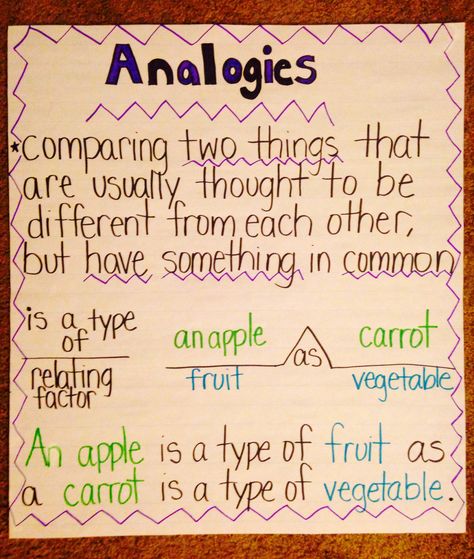 Analogies
*Comparing two things that
are usually thought to be
different from each other,
but have something in common
is a type
of
relating
factor
an apple
fruit
as
carrot
vegetable
An apple is a type of fruit as
a carrot is a type of vegetable.